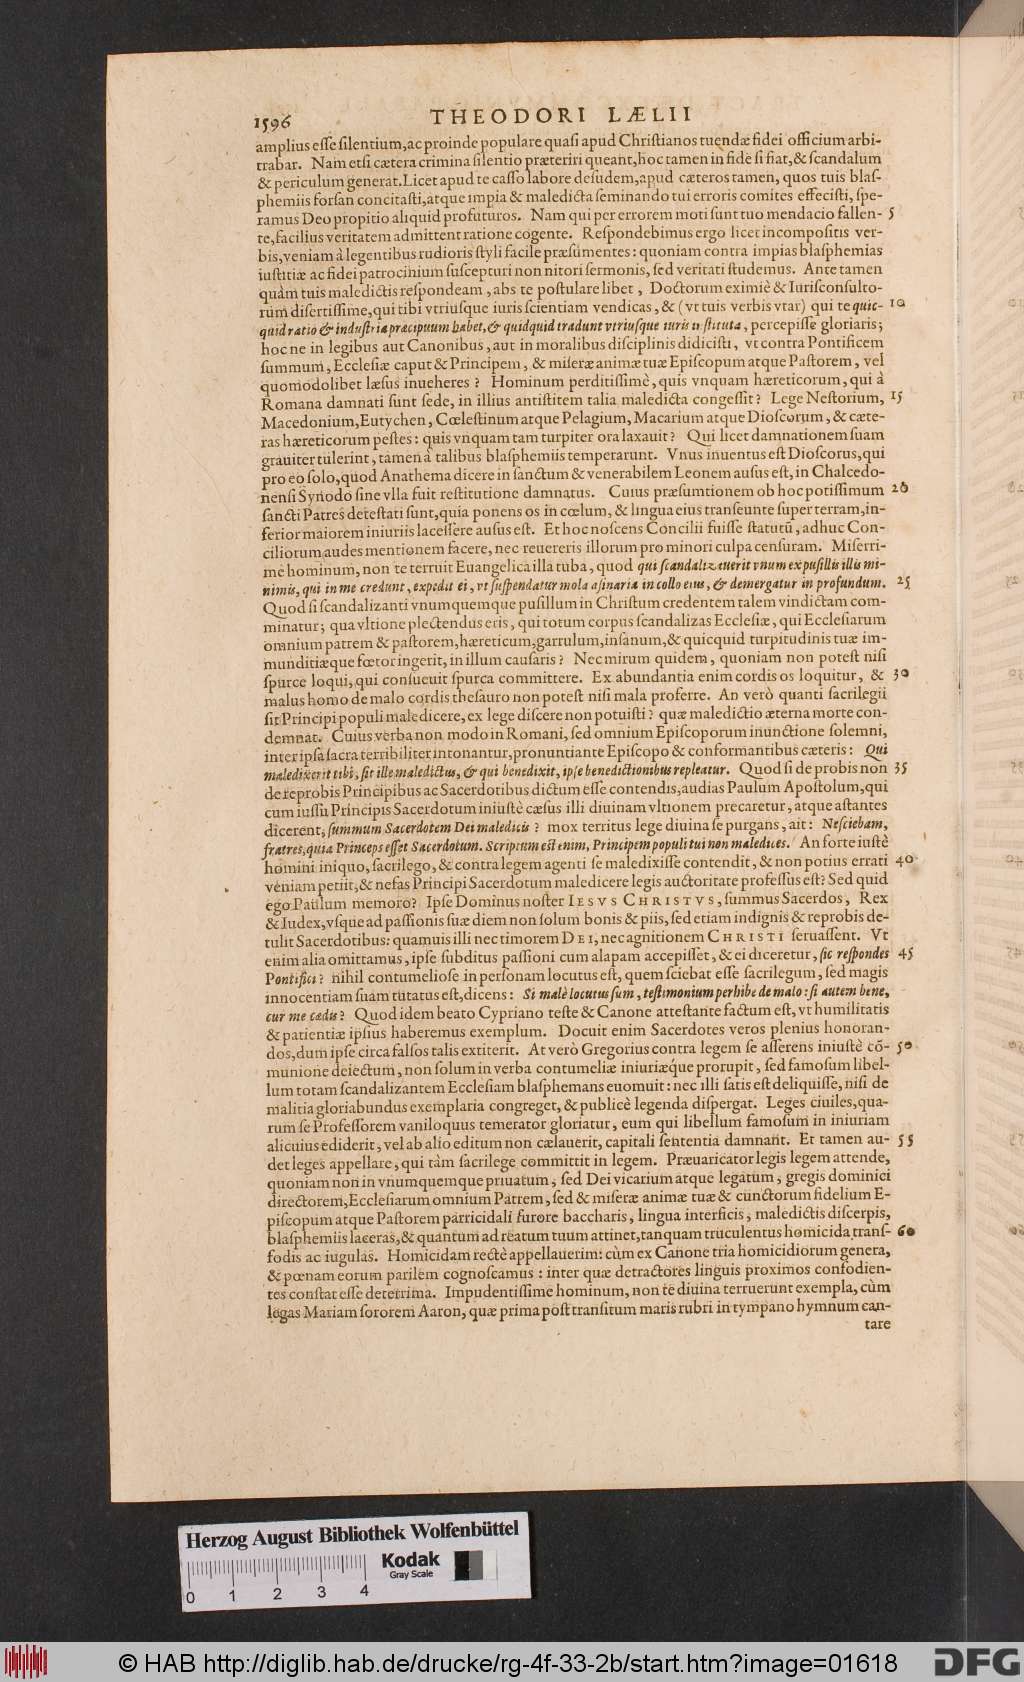 1596 THEODORI LÆLII
amplius esse silentium, ac proinde populare quasi apud Christianos tuendæ fidei officium arbi-
trabar. Nam etsi cætera crimina silentio præteriri queant, hoc tamen in fide si fiat, & scandalum
& periculum generat. Licet apud te casso labore desudem, apud cæteros tamen, quos tuis blas-
phemiis forsan concitasti, atque impia & maledicta seminando tui erroris comites effecisti, spe-
ramus Deo propitio aliquid profuturos. Nam qui per errorem moti sunt tuo mendacio fallen- 5
te, facilius veritatem admittent ratione cogente. Respondebimus ergo licet incompositis ver-
bis, veniam à legentibus rudioris styli facile præsumentes: quoniam contra impias blasphemias
iustitiæ ac fidei patrocinium suscepturi non nitori sermonis, sed veritati studemus. Ante tamen
quàm tuis maledictis respondeam, abs te postulare libet, Doctorum eximiè & Iurisconsulto-
rum disertissime, qui tibi vtriusque iuris scientiam vendicas, & (vt tuis verbis vtar) qui te quic- 10
quid ratio & industria præcipuum habet, & quidquid tradunt vtriusque iuris instituta, percepisse gloriaris;
hoc ne in legibus aut Canonibus, aut in moralibus disciplinis didicisti, vt contra Pontificem
summum, Ecclesiæ caput & Principem, & miseræ animæ tuæ Episcopum atque Pastorem, vel
quomodolibet læsus inueheres? Hominum perditissimè, quis vnquam hæreticorum, qui à
Romana damnati sunt sede, in illius antistitem talia maledicta congessit? Lege Nestorium, 15
Macedonium, Eutychen, Cœlestinum atque Pelagium, Macarium atque Dioscorum, & cæte-
ras hæreticorum pestes: quis vnquam tam turpiter ora laxauit? Qui licet damnationem suam
grauiter tulerint, tamen à talibus blasphemiis temperarunt. Vnus inuentus est Dioscorus, qui
pro eo solo, quod Anathema dicere in sanctum & venerabilem Leonem ausus est, in Chalcedo-
nensi Synodo sine vlla fuit restitutione damnatus. Cuius præsumtionem ob hoc potissimum 20
sancti Patres detestati sunt, quia ponens os in cœlum, & lingua eius transeunte super terram, in-
ferior maiorem iniuriis lacessere ausus est. Et hoc noscens Concilii fuisse statutũ, adhuc Con-
ciliorum audes mentionem facere, nec reuereris illorum pro minori culpa censuram. Miserri-
me hominum, non te terruit Euangelica illa tuba, quod qui scandalizauerit vnum ex pusillis illis mi-
nimis, qui in me credunt, expedit ei, vt suspendatur mola asinaria in collo eius, & demergatur in profundum. 25
Quod si scandalizanti vnumquemque pusillum in Christum credentem talem vindictam com-
minatur; qua vltione plectendus eris, qui totum corpus scandalizas Ecclesiæ, qui Ecclesiarum
omnium patrem & pastorem, hæreticum, garrulum, insanum, & quicquid turpitudinis tuæ im-
munditiæque fœtor ingerit, in illum causaris? Nec mirum quidem, quoniam non potest nisi
spurce loqui, qui consueuit spurca committere. Ex abundantia enim cordis os loquitur, & 30
malus homo de malo cordis thesauro non potest nisi mala proferre. An verò quanti sacrilegii
sit Principi populi maledicere, ex lege discere non potuisti? quæ maledictio æterna morte con-
demnat. Cuius verba non modo in Romani, sed omnium Episcoporum inunctione solemni,
inter ipsa sacra terribiliter intonantur, pronuntiante Episcopo & conformantibus cæteris: Qui
maledixerit tibi, sit ille maledictus, & qui benedixit, ipse benedictionibus repleatur. Quod si de probis non 35
de reprobis Principibus ac Sacerdotibus dictum esse contendis, audias Paulum Apostolum, qui
cum iussu Principis Sacerdotum iniustè cæsus illi diuinam vltionem precaretur, atque astantes
dicerent, summum Sacerdotem Dei maledicis? mox territus lege diuina se purgans, ait: Nesciebam,
fratres, quia Princeps esset Sacerdotum. Scriptum est enim, Principem populi tui non maledices. An forte iustè
homini iniquo, sacrilego, & contra legem agenti se maledixisse contendit, & non potius errati 40
veniam petiit, & nefas Principi Sacerdotum maledicere legis auctoritate professus est? Sed quid
ego Paulum memoro? Ipse Dominus noster IESVS CHRISTVS, summus Sacerdos, Rex
& Iudex, vsque ad passionis suæ diem non solum bonis & piis, sed etiam indignis & reprobis de-
tulit Sacerdotibus: quamuis illi nec timorem DEI, nec agnitionem CHRISTI seruassent. Vt
enim alia omittamus, ipse subditus passioni cum alapam accepisset, & ei diceretur, sic respondes 45
Pontifici? nihil contumeliose in personam locutus est, quem sciebat esse sacrilegum, sed magis
innocentiam suam tutatus est, dicens: Si malè locutus sum, testimonium perhibe de malo: si autem bene,
cur me cædis? Quod idem beato Cypriano teste & Canone attestante factum est, vt humilitatis
& patientiæ ipsius haberemus exemplum. Docuit enim Sacerdotes veros plenius honoran-
dos, dum ipse circa falsos talis extiterit. At verò Gregorius contra legem se asserens iniustè cõ- 50
munione deiectum, non solum in verba contumeliæ iniuriæq́ue prorupit, sed famosum libel-
lum totam scandalizantem Ecclesiam blasphemans euomuit: nec illi satis est deliquisse, nisi de
malitia gloriabundus exemplaria congreget, & publicè legenda dispergat. Leges ciuiles, qua-
rum se Professorem vaniloquus temerator gloriatur, eum qui libellum famosum in iniuriam
alicuius ediderit, vel ab alio editum non cælauerit, capitali sententia damnant. Et tamen au- 55
det leges appellare, qui tàm sacrilege committit in legem. Præuaricator legis legem attende,
quoniam non in vnumquemque priuatum, sed Dei vicarium atque legatum, gregis dominici
directorem, Ecclesiarum omnium Patrem, sed & miseræ animæ tuæ & cunctorum fidelium E-
piscopum atque Pastorem parricidali furore baccharis, lingua interficis, maledictis discerpis,
blasphemiis laceras, & quantum ad reatum tuum attinet, tanquam truculentus homicida trans- 60
fodis ac iugulas. Homicidam rectè appellauerim: cùm ex Canone tria homicidiorum genera,
& pœnam eorum parilem cognoscamus: inter quæ detractores linguis proximos confodien-
tes constat esse deterrima. Impudentissime hominum, non te diuina terruerunt exempla, cùm
legas Mariam sororem Aaron, quæ prima post transitum maris rubri in tympano hymnum can-
tare
Herzog August Bibliothek Wolfenbüttel
Kodak
Gray Scale
0 1 2 3 4
© HAB http://diglib.hab.de/drucke/rg-4f-33-2b/start.htm?image=01618
DFG